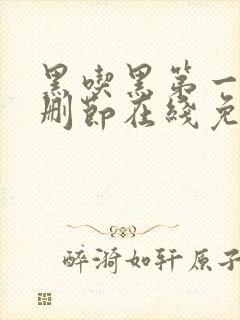 黑喫黑第一
刪節在綫免
醉漪如轩原子